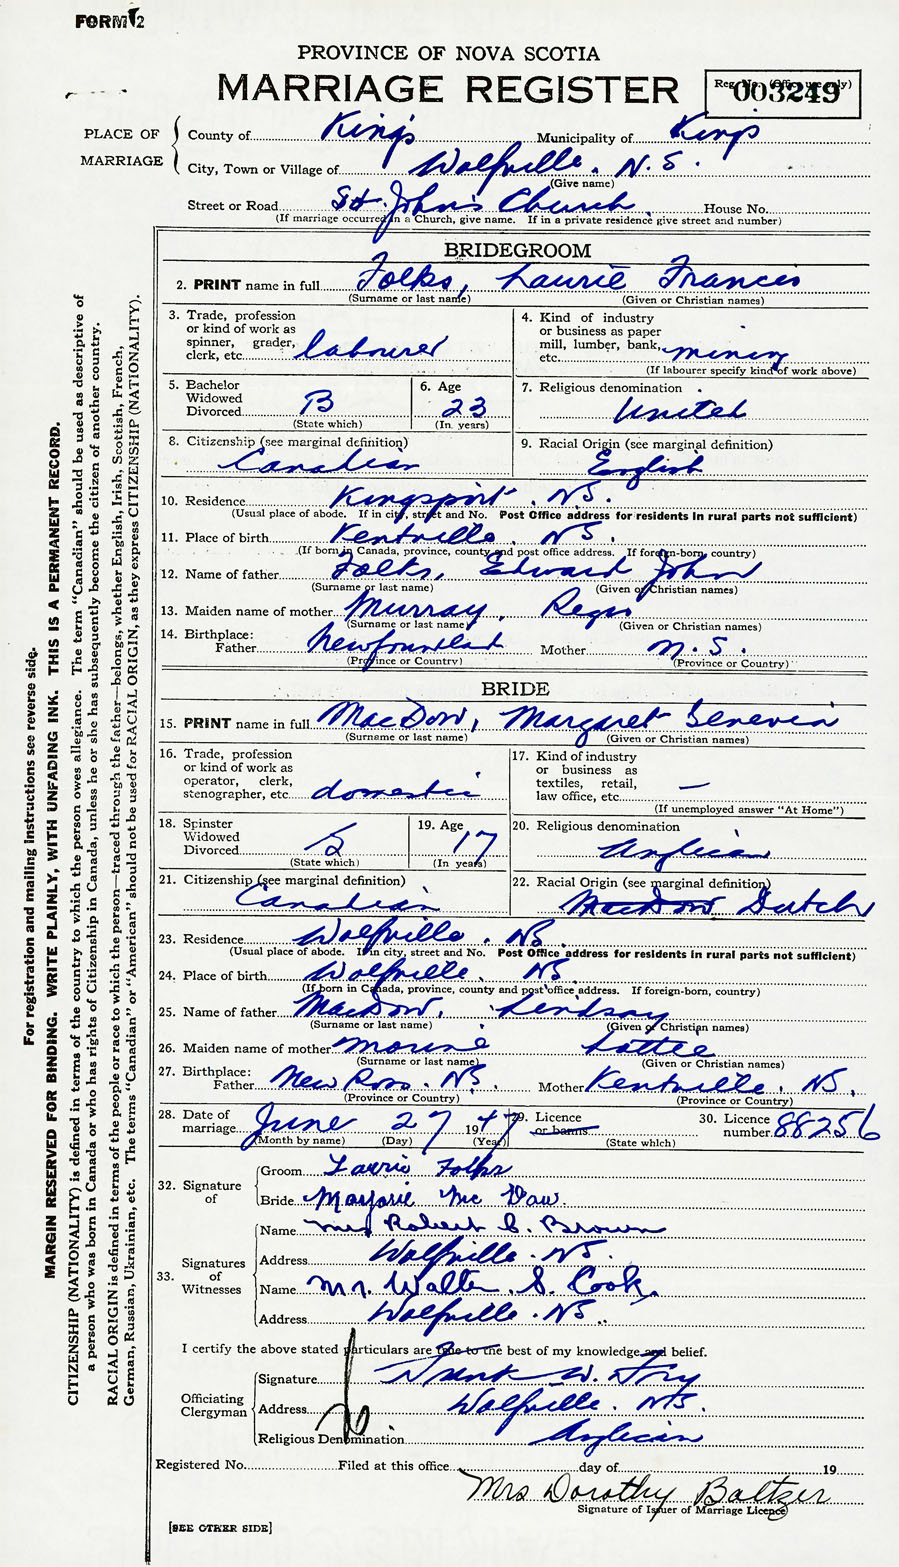 FORM 2
PROVINCE OF NOVA SCOTIA
MARRIAGE REGISTER
Reg. No. (Office use only)
003249
PLACE OF MARRIAGE
County of King's Municipality of Kings
City, Town or Village of Wolfville. N.S.
(Give name)
Street or Road St. John's Church. House No.
(If marriage occurred in a Church, give name. If in a private residence give street and number)
BRIDEGROOM
2. PRINT name in full Folks, Laurie Francis
(Surname or last name) (Given or Christian names)
3. Trade, profession or kind of work as spinner, grader, clerk, etc. labourer
4. Kind of industry or business as paper mill, lumber, bank, etc. mining
(If labourer specify kind of work above)
5. Bachelor Widowed Divorced B
(State which)
6. Age 23
(In years)
7. Religious denomination United
8. Citizenship (see marginal definition) Canadian
9. Racial Origin (see marginal definition) English
10. Residence Kingsport. NS.
(Usual place of abode. If in city, street and No. Post Office address for residents in rural parts not sufficient)
11. Place of birth Kentville. NS.
(If born in Canada, province, county and post office address. If foreign-born, country)
12. Name of father Folks, Edward John
(Surname or last name) (Given or Christian names)
13. Maiden name of mother Murray,
(Surname or last name) (Given or Christian names)
14. Birthplace: Father Newfoundland Mother N.S.
(Province or Country) (Province or Country)
BRIDE
15. PRINT name in full MacDow, Margaret
(Surname or last name) (Given or Christian names)
16. Trade, profession or kind of work as operator, clerk, stenographer, etc. domestic
17. Kind of industry or business as textiles, retail, law office, etc. —
(If unemployed answer "At Home")
18. Spinster Widowed Divorced S
(State which)
19. Age 17
(In years)
20. Religious denomination Anglican
21. Citizenship (see marginal definition) Canadian
22. Racial Origin (see marginal definition) MacDow Dutch
23. Residence Wolfville. NS.
(Usual place of abode. If in city, street and No. Post Office address for residents in rural parts not sufficient)
24. Place of birth Wolfville. NS.
(If born in Canada, province, county and post office address. If foreign-born, country)
25. Name of father MacDow, Lindsay
(Surname or last name) (Given or Christian names)
26. Maiden name of mother Lottie
(Surname or last name) (Given or Christian names)
27. Birthplace: Father New Ross. NS. Mother Kentville. NS.
(Province or Country) (Province or Country)
28. Date of marriage June 27 1947
(Month by name) (Day) (Year)
29. Licence or banns
(State which)
30. Licence number 88256
32. Signature of
Groom Laurie Folks
Bride Marjorie Mc Daw.
33. Signatures of Witnesses
Name Mrs Robert C. Brown
Address Wolfville. NS.
Name Mr. Walter S. Cook.
Address Wolfville. NS.
I certify the above stated particulars are true to the best of my knowledge and belief.
Officiating Clergyman
Signature Frank W. Fry
Address Wolfville. NS.
Religious Denomination Anglican
Registered No. Filed at this office day of 19
Mrs Dorothy Baltzer
Signature of Issuer of Marriage Licence
[SEE OTHER SIDE]
For registration and mailing instructions see reverse side.
MARGIN RESERVED FOR BINDING. WRITE PLAINLY, WITH UNFADING INK. THIS IS A PERMANENT RECORD.
CITIZENSHIP (NATIONALITY) is defined in terms of the country to which the person owes allegiance. The term "Canadian" should be used as descriptive of
a person who was born in Canada or who has rights of Citizenship in Canada, unless he or she has subsequently become the citizen of another country.
RACIAL ORIGIN is defined in terms of the people or race to which the person—traced through the father—belongs, whether English, Irish, Scottish, French,
German, Russian, Ukrainian, etc. The terms "Canadian" or "American" should not be used for RACIAL ORIGIN, as they express CITIZENSHIP (NATIONALITY).